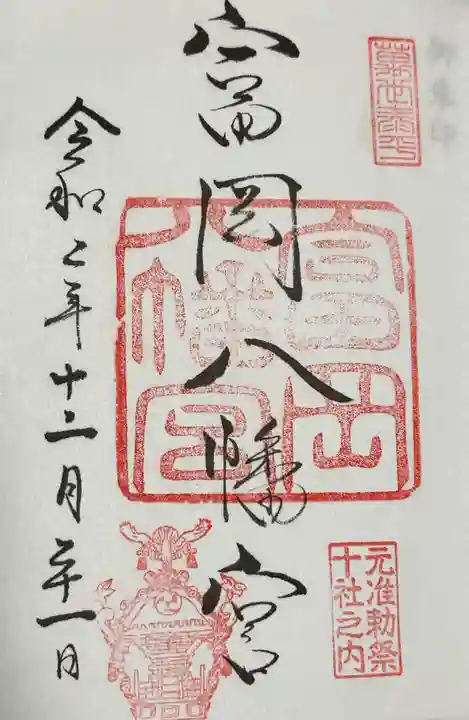 萬世泰平
富岡八幡宮
富岡
八幡宮
元准勅祭
十社之内
令和二年十二月二十一日